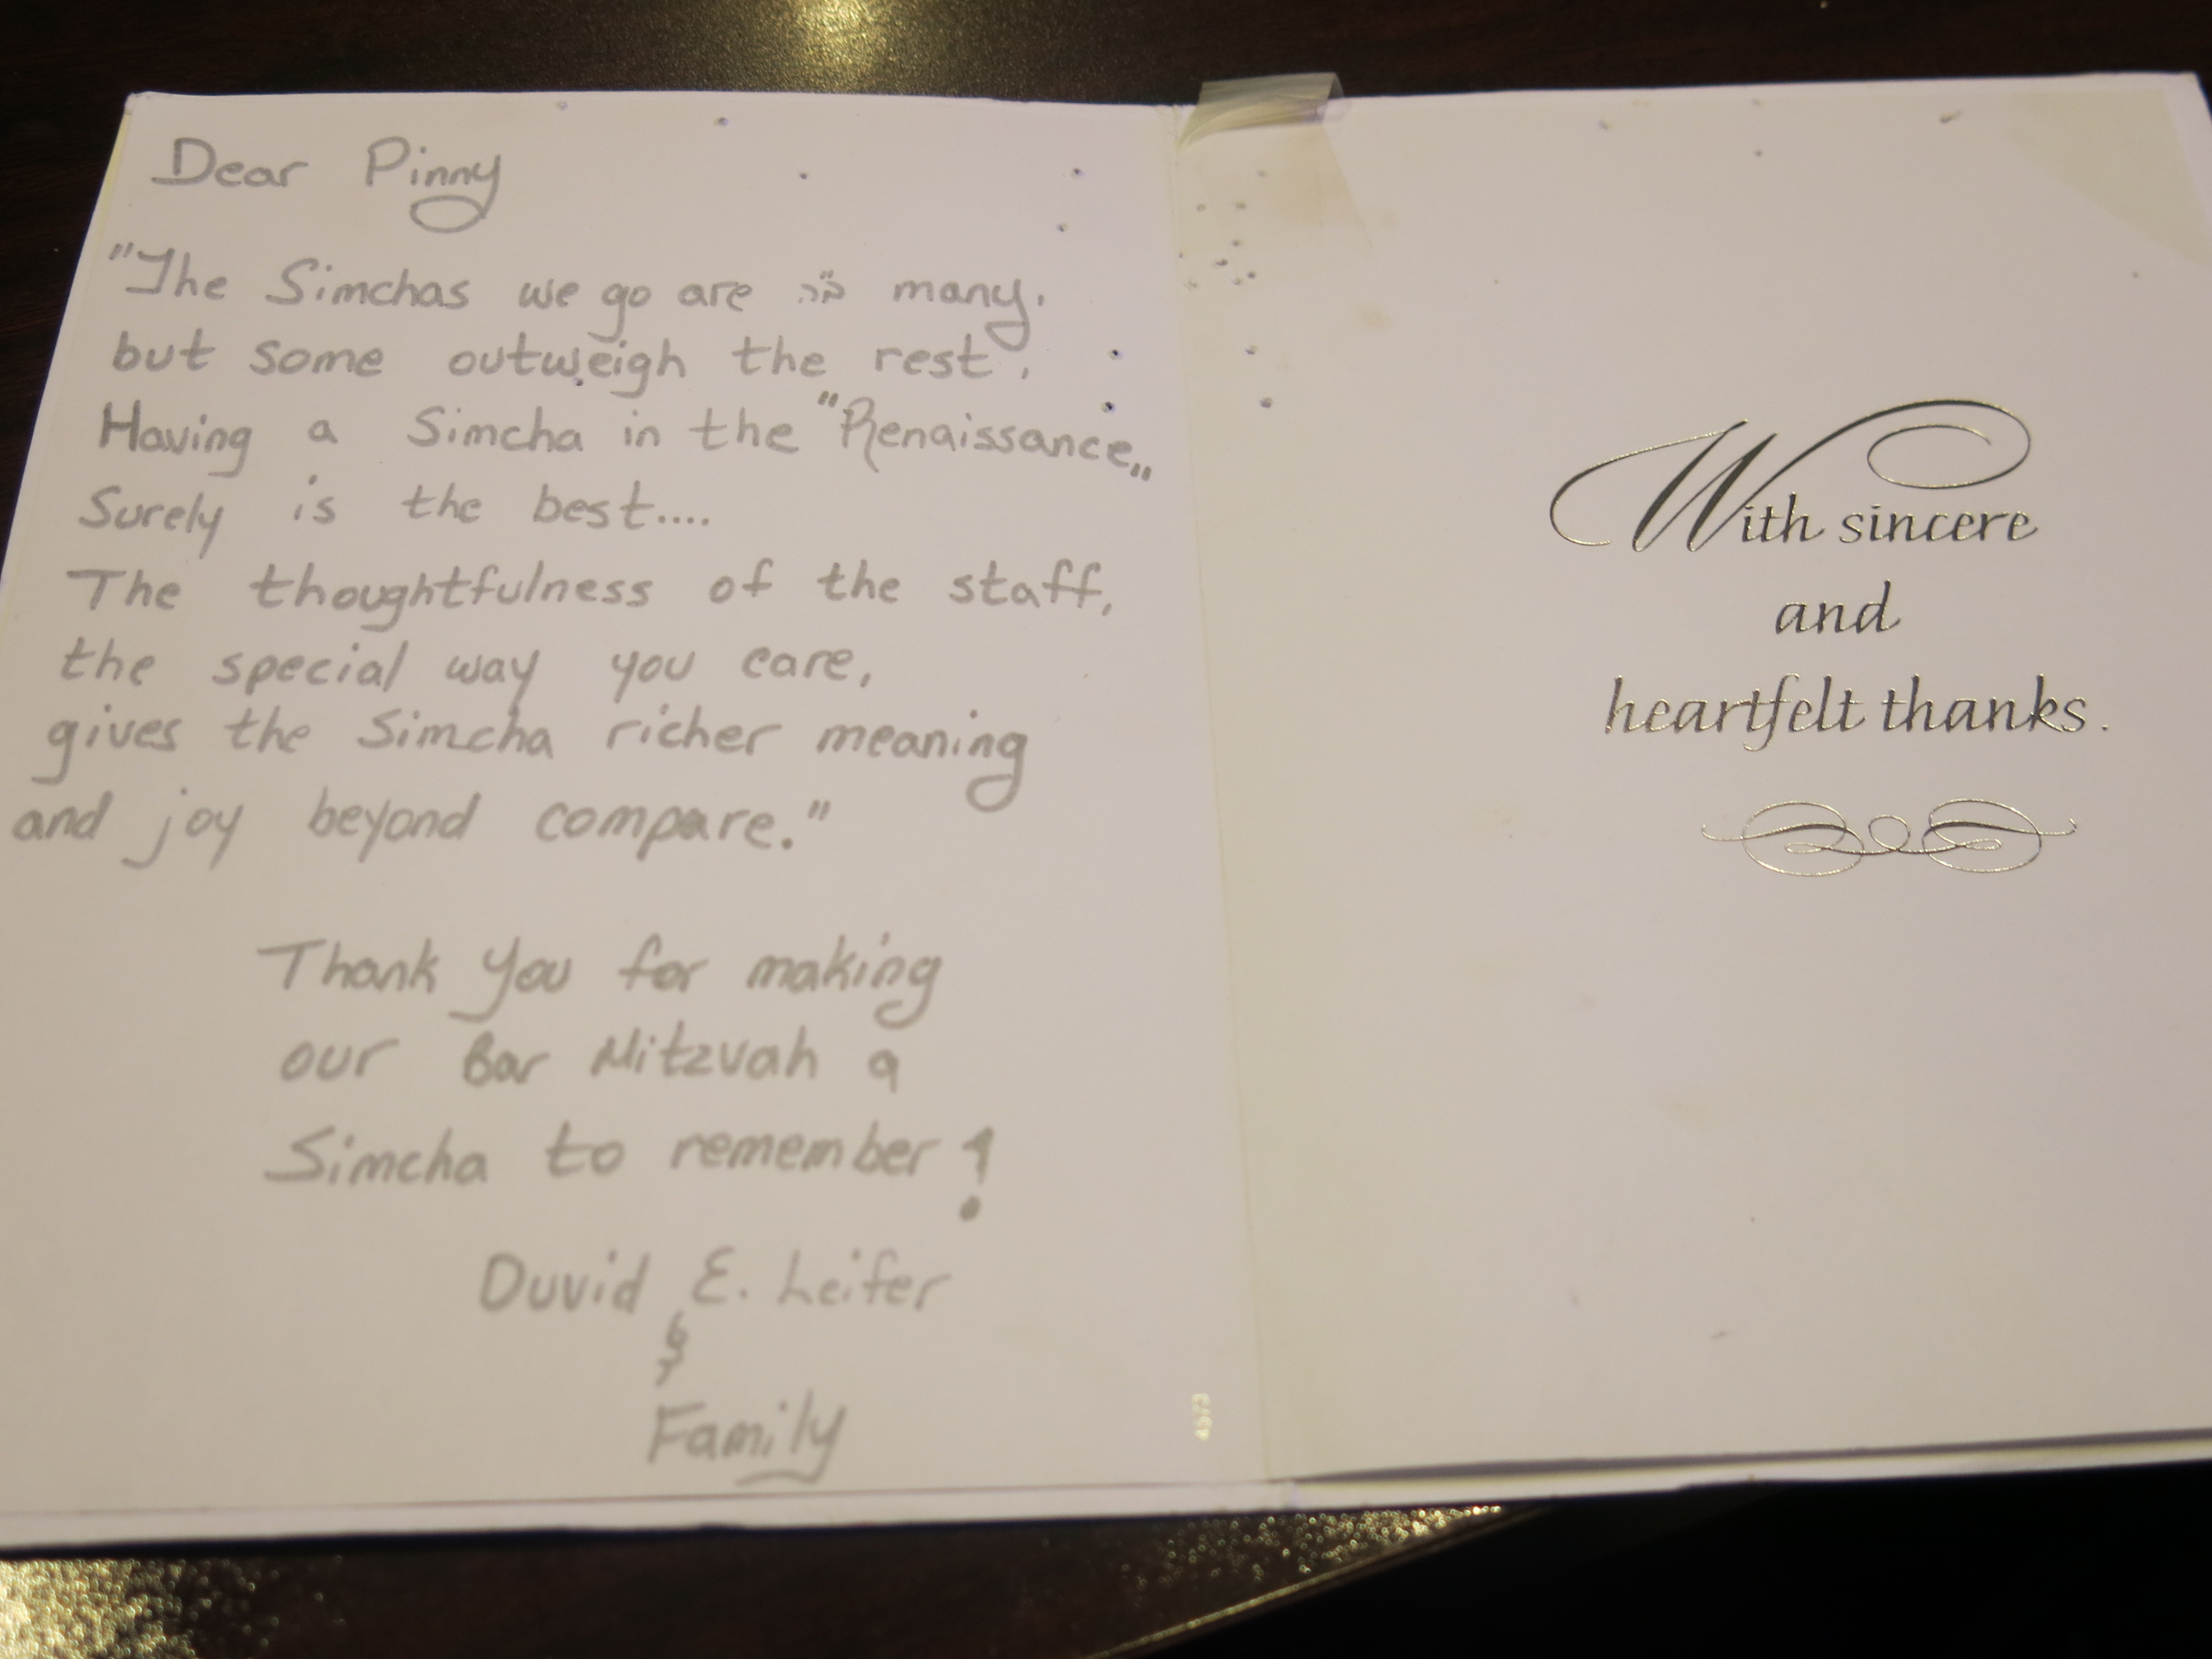 Dear Pinny
"The Simchas we go are many,
but some outweigh the rest,
Having a Simcha in the "Renaissance„
Surely is the best....
The thoughtfulness of the staff,
the special way you care,
gives the Simcha richer meaning
and joy beyond compare."
Thank You for making
our Bar Mitzvah a
Simcha to remember!
Duvid E. Leifer
&
Family
With sincere
and
heartfelt thanks.